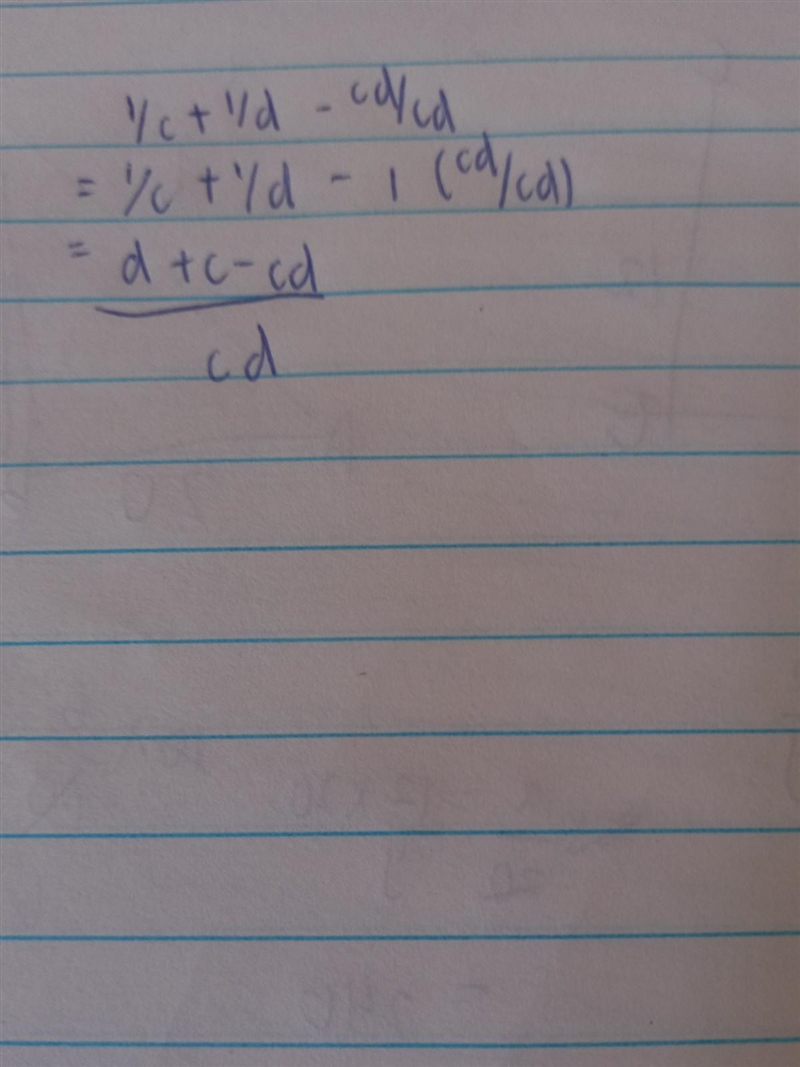 1/c + 1/d - cd/cd
= 1/c + 1/d - 1 (cd/cd)
= d + c - cd
cd